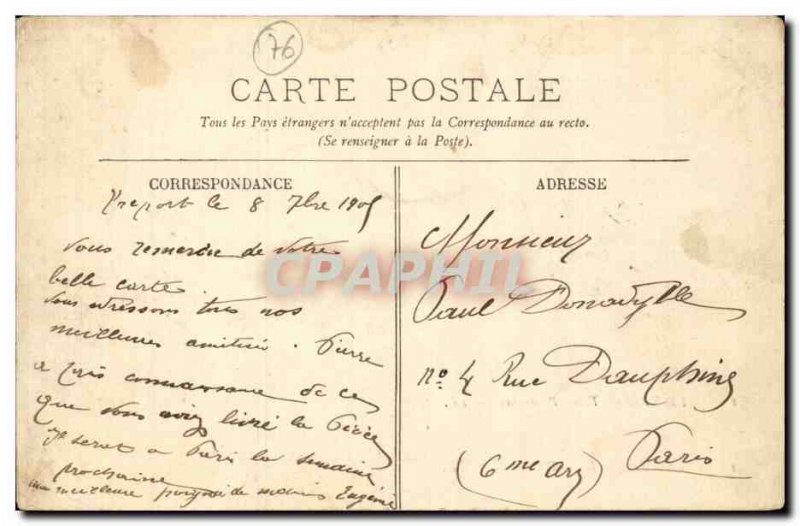 76
CARTE POSTALE
Tous les Pays étrangers n'acceptent pas la Correspondance au recto.
(Se renseigner à la Poste).
CORRESPONDANCE
Tréport le 8 7bre 1905
Vous remercie de votre
belle carte.
Vous adressons tous nos
meilleures amitiés. Pierre
a pris connaissance de ce
que vous avez livré la
Je serai à Paris la semaine
prochaine
meilleure poignée de mains Eugène
ADRESSE
Monsieur
Paul
No 4 Rue Dauphine
(6me arr) Paris
CPAPHIL